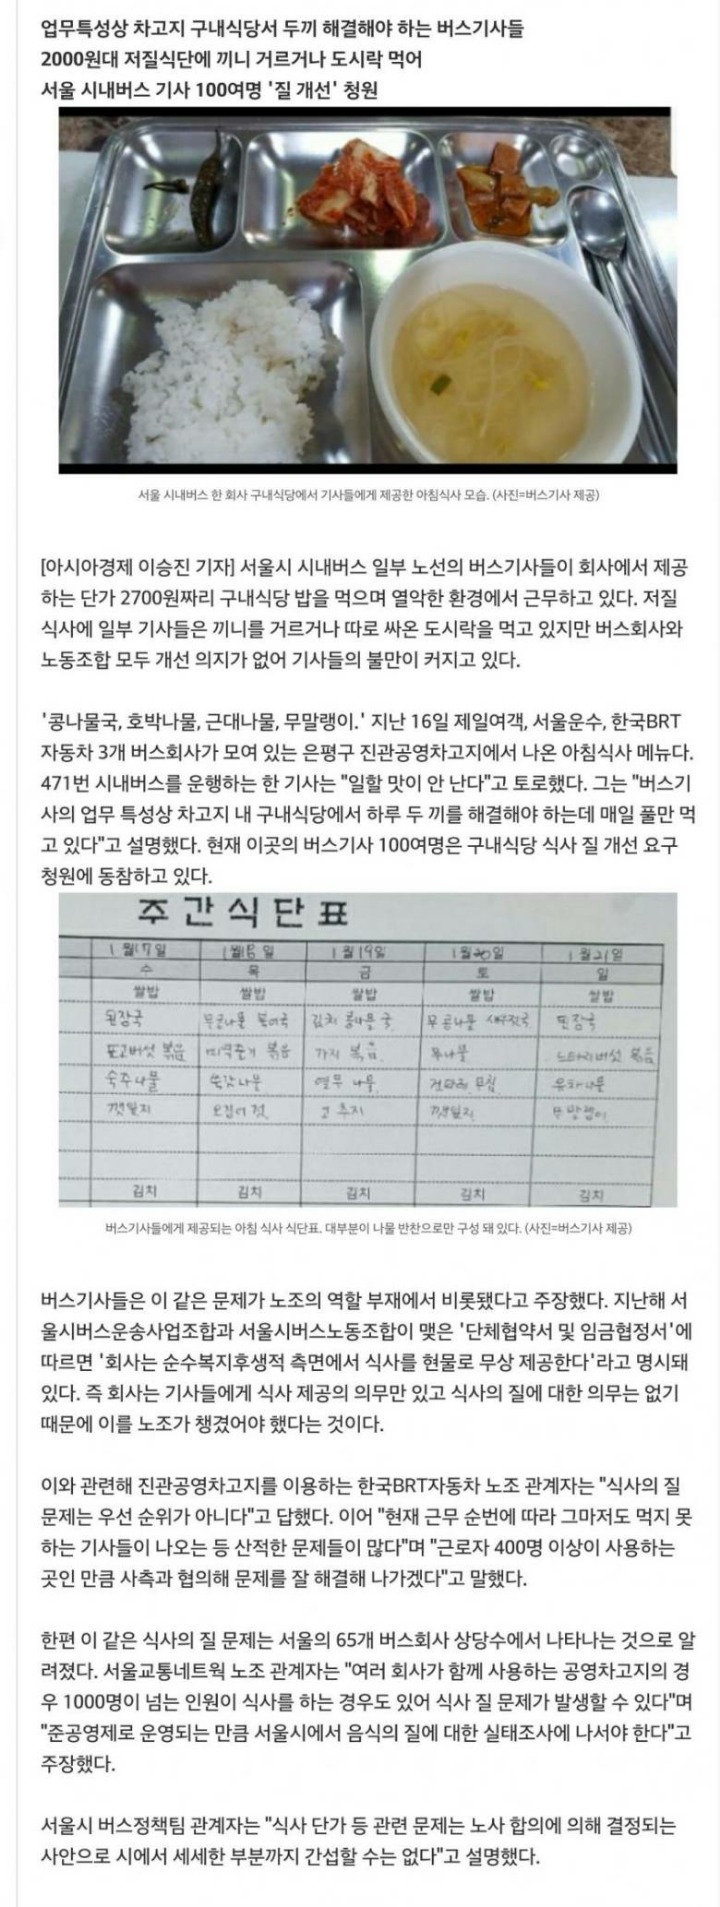 업무특성상 차고지 구내식당서 두끼 해결해야 하는 버스기사들
2000원대 저질식단에 끼니 거르거나 도시락 먹어
서울 시내버스 기사 100여명 '질 개선' 청원
서울 시내버스 한 회사 구내식당에서 기사들에게 제공한 아침식사 모습. (사진=버스기사 제공)
[아시아경제 이승진 기자] 서울시 시내버스 일부 노선의 버스기사들이 회사에서 제공
하는 단가 2700원짜리 구내식당 밥을 먹으며 열악한 환경에서 근무하고 있다. 저질
식사에 일부 기사들은 끼니를 거르거나 따로 싸온 도시락을 먹고 있지만 버스회사와
노동조합 모두 개선 의지가 없어 기사들의 불만이 커지고 있다.
'콩나물국, 호박나물, 근대나물, 무말랭이.' 지난 16일 제일여객, 서울운수, 한국BRT
자동차 3개 버스회사가 모여 있는 은평구 진관공영차고지에서 나온 아침식사 메뉴다.
471번 시내버스를 운행하는 한 기사는 "일할 맛이 안 난다"고 토로했다. 그는 "버스기
사의 업무 특성상 차고지 내 구내식당에서 하루 두 끼를 해결해야 하는데 매일 풀만 먹
고 있다"고 설명했다. 현재 이곳의 버스기사 100여명은 구내식당 식사 질 개선 요구
청원에 동참하고 있다.
주간식단표
1월17일 1월18일 1월19일 1월20일 1월21일
수 목 금 토 일
쌀밥 쌀밥 쌀밥 쌀밥 쌀밥
된장국 무콩나물 북어국 김치 콩나물국 무콩나물 새우젓국 된장국
표고버섯 볶음 미역줄기 볶음 가지 볶음 무나물 느타리버섯 볶음
숙주나물 쑥갓나물 열무 나물 겉파래 무침 유채나물
깻잎지 오징어 젓 고추지 깻잎지 무말랭이
김치 김치 김치 김치 김치
버스기사들에게 제공되는 아침 식사 식단표. 대부분이 나물 반찬으로만 구성 돼 있다. (사진=버스기사 제공)
버스기사들은 이 같은 문제가 노조의 역할 부재에서 비롯됐다고 주장했다. 지난해 서
울시버스운송사업조합과 서울시버스노동조합이 맺은 '단체협약서 및 임금협정서'에
따르면 '회사는 순수복지후생적 측면에서 식사를 현물로 무상 제공한다'라고 명시돼
있다. 즉 회사는 기사들에게 식사 제공의 의무만 있고 식사의 질에 대한 의무는 없기
때문에 이를 노조가 챙겼어야 했다는 것이다.
이와 관련해 진관공영차고지를 이용하는 한국BRT자동차 노조 관계자는 "식사의 질
문제는 우선 순위가 아니다"고 답했다. 이어 "현재 근무 순번에 따라 그마저도 먹지 못
하는 기사들이 나오는 등 산적한 문제들이 많다"며 "근로자 400명 이상이 사용하는
곳인 만큼 사측과 협의해 문제를 잘 해결해 나가겠다"고 말했다.
한편 이 같은 식사의 질 문제는 서울의 65개 버스회사 상당수에서 나타나는 것으로 알
려졌다. 서울교통네트웍 노조 관계자는 "여러 회사가 함께 사용하는 공영차고지의 경
우 1000명이 넘는 인원이 식사를 하는 경우도 있어 식사 질 문제가 발생할 수 있다"며
"준공영제로 운영되는 만큼 서울시에서 음식의 질에 대한 실태조사에 나서야 한다"고
주장했다.
서울시 버스정책팀 관계자는 "식사 단가 등 관련 문제는 노사 합의에 의해 결정되는
사안으로 시에서 세세한 부분까지 간섭할 수는 없다"고 설명했다.